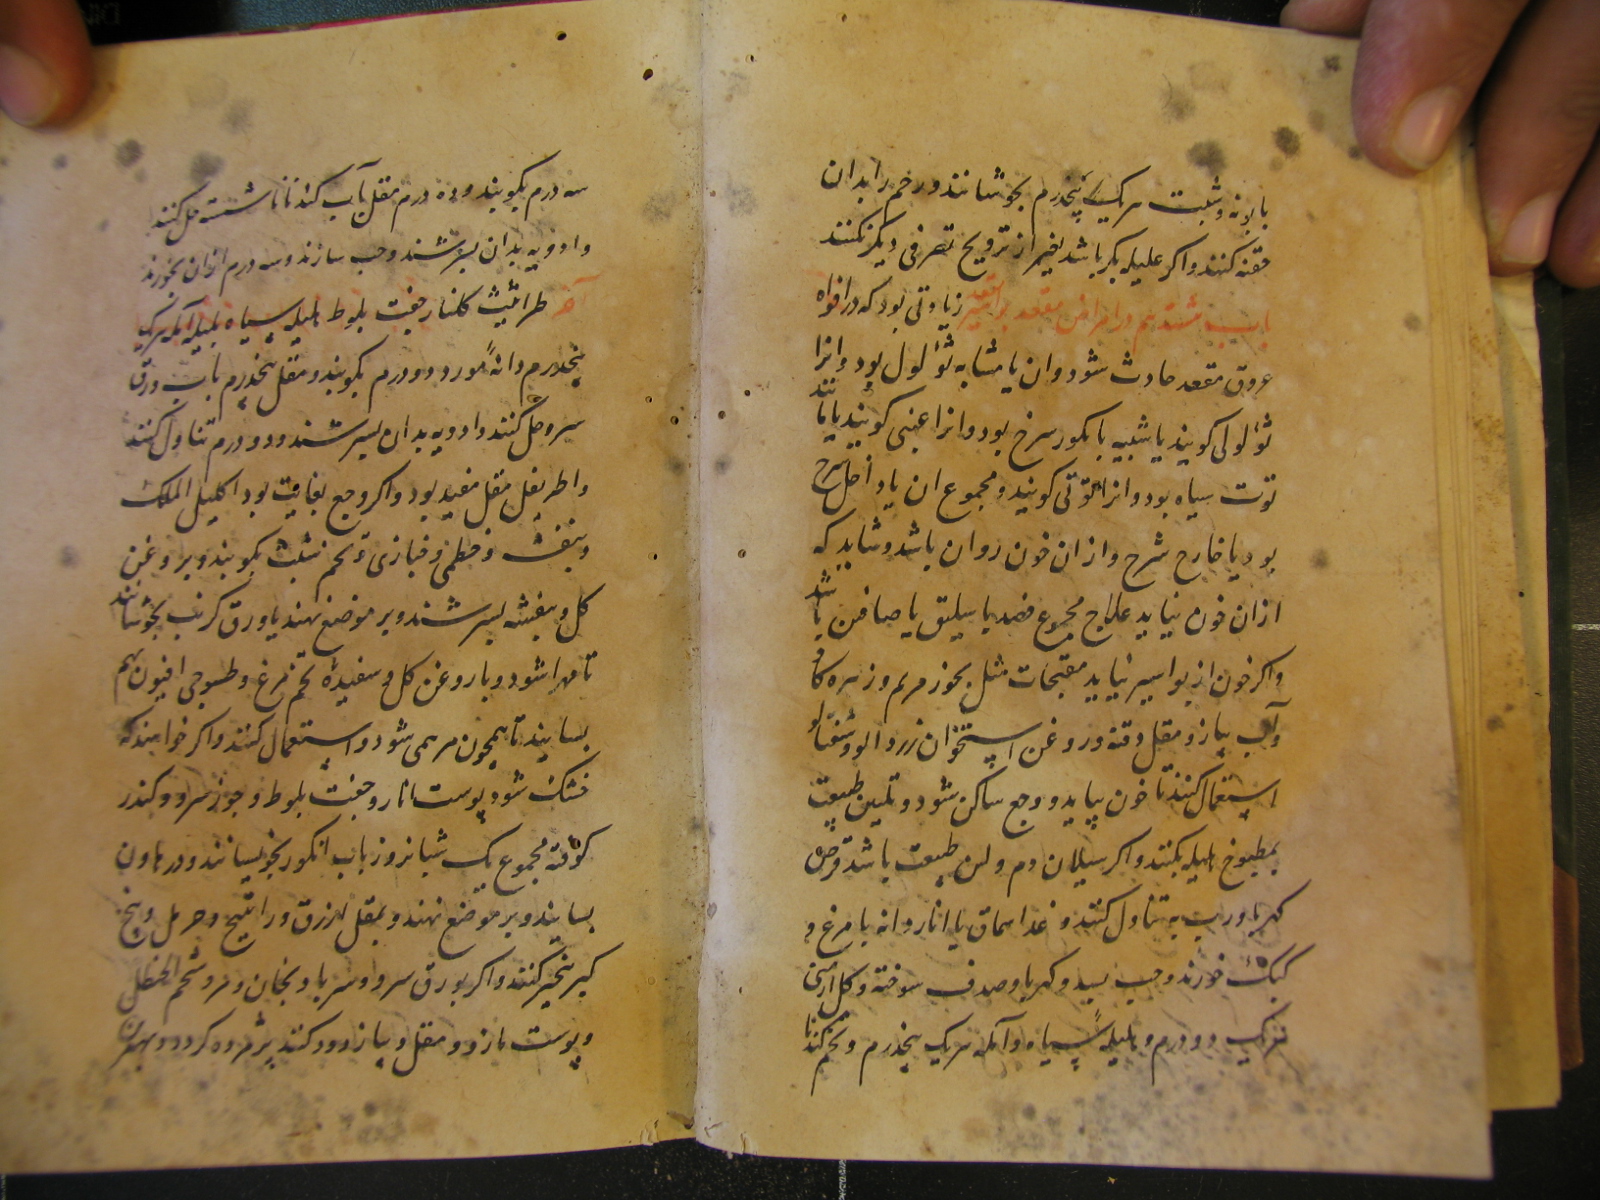 بابونه و شبت هر یک پنجدرم بجوشانند و رحم را بدان
حقنه کنند و اکر علیله بکر باشد بغیر از ترویح تصرفی دیکر نکنند
باب هشتم در امراض مقعد بواسیر زیادتی بود که در افواه
عروق مقعد حادث شود و ان یا مشابه ثؤلول بود و انرا
ثؤلولی کویند یا شبیه بانکور سرخ بود و انرا عنبی کویند یا مانند
توت سیاه بود و انرا توتی کویند و مجموع ان یا داخل شرح
بود یا خارج شرح و از ان خون روان باشد و شاید که
از ان خون نیاید علاج مجموع فصد باسلیق یا صافن باشد
و اکر خون از بواسیر نیاید مفتحات مثل بخور مریم و زهره کاو
و آب پیاز و مقل و قنه و روغن استخوان زردالو و شفتالو
استعمال کنند تا خون بیاید و وجع ساکن شود و تلیین طبیعت
بمطبوخ هلیله بکنند و اکر سیلان دم و لین طبیعت باشد قرص
کهربا و رب به تناول کنند و غذا سماق یا اناردانه با مرغ و
کبک خورند و حب بسد و کهربا و صدف سوخته و کل ارمنی
هریک دو درم و هلیله سیاه و آمله هریک پنجدرم و تخم کندنا
سه درم بکوبند و ده درم مقل بآب کندنا تا شسته حل کنند
و ادویه بدان بسرشند و حب سازند و سه درم ازان بخورند
آخر طراثیث کلنار جفت بلوط هلیله سیاه بلیله آمله هریک
پنجدرم دانهٔ مورد دو درم بکوبند و مقل پنجدرم باب ورق
سرو حل کنند و ادویه بدان بسرشند و دو درم تناول کنند
و اطریفل مقل مفید بود و اکر وجع بغایت بود اکلیل الملک
و بنفشه و خطمی و خبازی و تخم شبت بکوبند و بروغن
کل و بنفشه بسرشند و بر موضع نهند یا ورق کرنب بجوشانند
تا مهرا شود و با روغن کل و سفیدهٔ تخم مرغ و طسوجی افیون بهم
بسایند تا همچون مرهمی شود و استعمال کنند و اکر خواهند که
خشک شود پوست انار و جفت بلوط و جوز سرو و کندر
کوفته مجموع یک شبانروز باب انکور بخیسانند و در هاون
بسایند و بر موضع نهند و بمقل ازرق و راتینج و حرمل و بیخ
کبر تبخیر کنند و اکر بورق سرو و سر بادنجان و مر و شحم الحنظل
و پوست مازو و مقل و پیاز دود کنند پژمرده کردد و بهترین